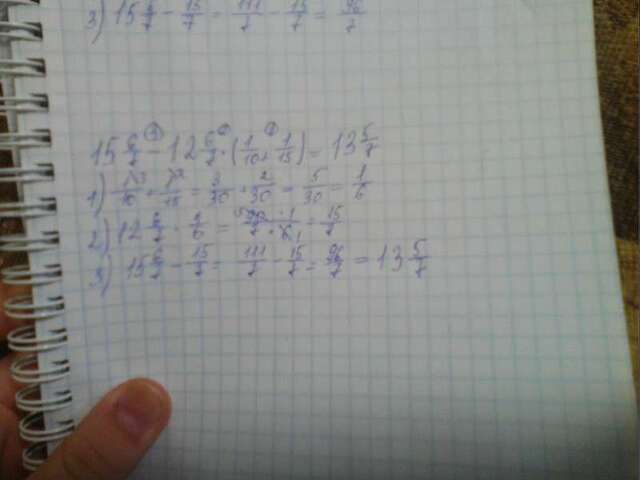 3) 15 6/7 - 15/7 = 111/7 - 15/7 = 96/7
15 6/7 - 12 6/7 · (1/10 + 1/15) = 13 5/7
1) 1/10 + 1/15 = 3/30 + 2/30 = 5/30 = 1/6
2) 12 6/7 · 1/6 = 90/7 · 1/6 = 15/7
3) 15 6/7 - 15/7 = 111/7 - 15/7 = 96/7 = 13 5/7